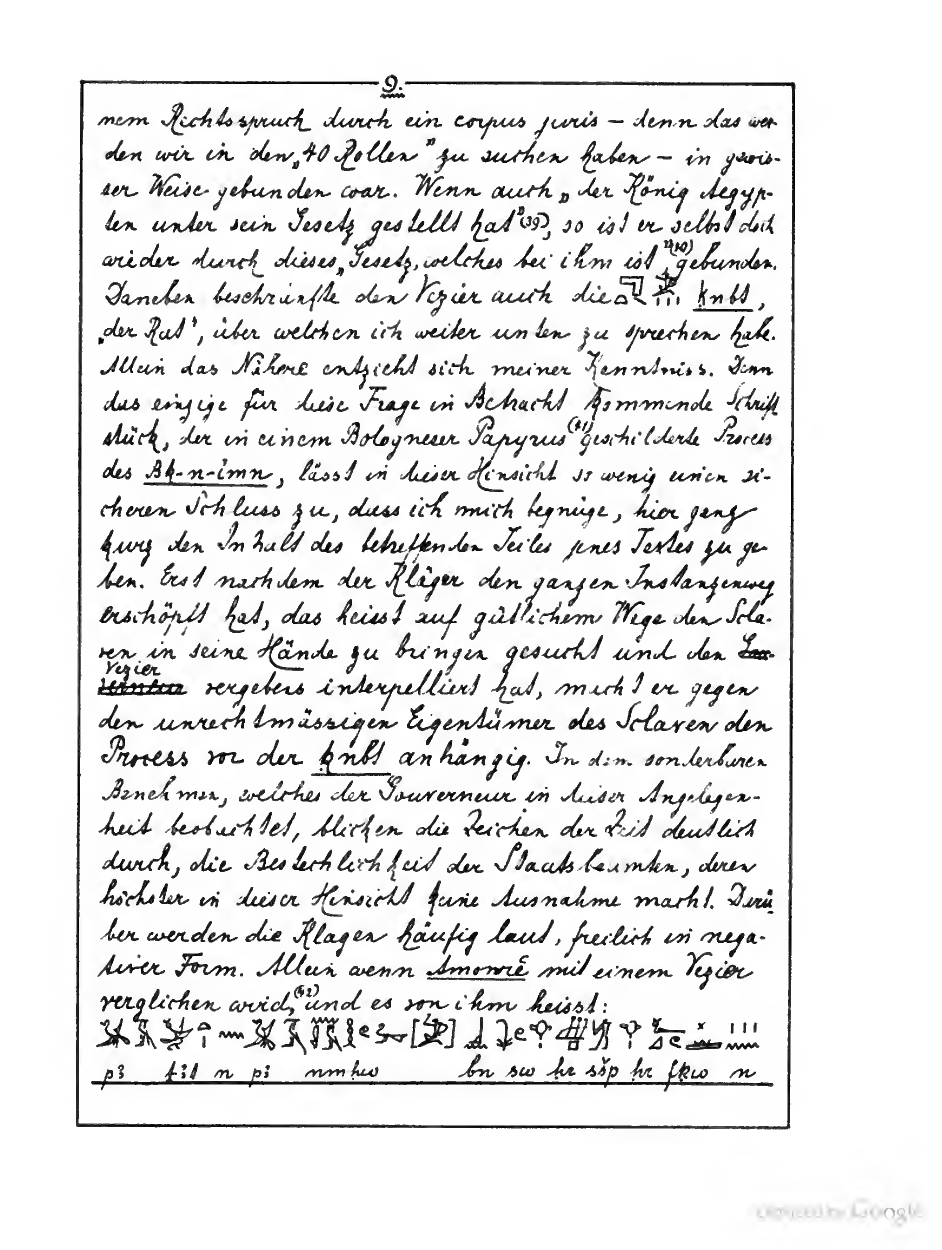 9.
nem Rechtsspruch durch ein corpus juris – denn das wer-
den wir in den „40 Rollen" zu suchen haben – in gewis-
ser Weise gebunden war. Wenn auch „der König Aegyp-
ten unter sein Gesetz gestellt hat"(39), so ist er selbst doch
wieder durch dieses „Gesetz, welches bei ihm ist"(40) gebunden.
Daneben beschränkte den Vezier auch die ḳnbt,
„der Rat", über welchen ich weiter unten zu sprechen habe.
Allein das Nähere entzieht sich meiner Kenntniss. Denn
das einzige für diese Frage in Betracht kommende Schrift
stück, der in einem Bologneser Papyrus(41) geschilderte Process
des Bk-n-imn, lässt in dieser Hinsicht so wenig einen si-
cheren Schluss zu, dass ich mich begnüge, hier ganz
kurz den Inhalt des betreffenden Teiles jenes Textes zu ge-
ben. Erst nachdem der Kläger den ganzen Instanzenweg
erschöpft hat, das heisst auf gütlichem Wege den Scla-
ven in seine Hände zu bringen gesucht und den
Vezier vergebens interpelliert hat, macht er gegen
den unrechtmässigen Eigentümer des Sclaven den
Process vor der ḳnbt anhängig. In dem sonderbaren
Benehmen, welches der Gouverneur in dieser Angelegen-
heit beobachtet, blicken die Zeichen der Zeit deutlich
durch, die Bestechlichkeit der Staatsbeamten, deren
höchster in dieser Hinsicht keine Ausnahme macht. Darü
ber werden die Klagen häufig laut, freilich in nega-
tiver Form. Allein wenn Amonrē mit einem Vezier
verglichen wird,(42) und es von ihm heisst:
pꜣ ṯꜣt n pꜣ nmḥw bn sw ḥr šsp ḥr fḳꜣw n
Digitized by Google